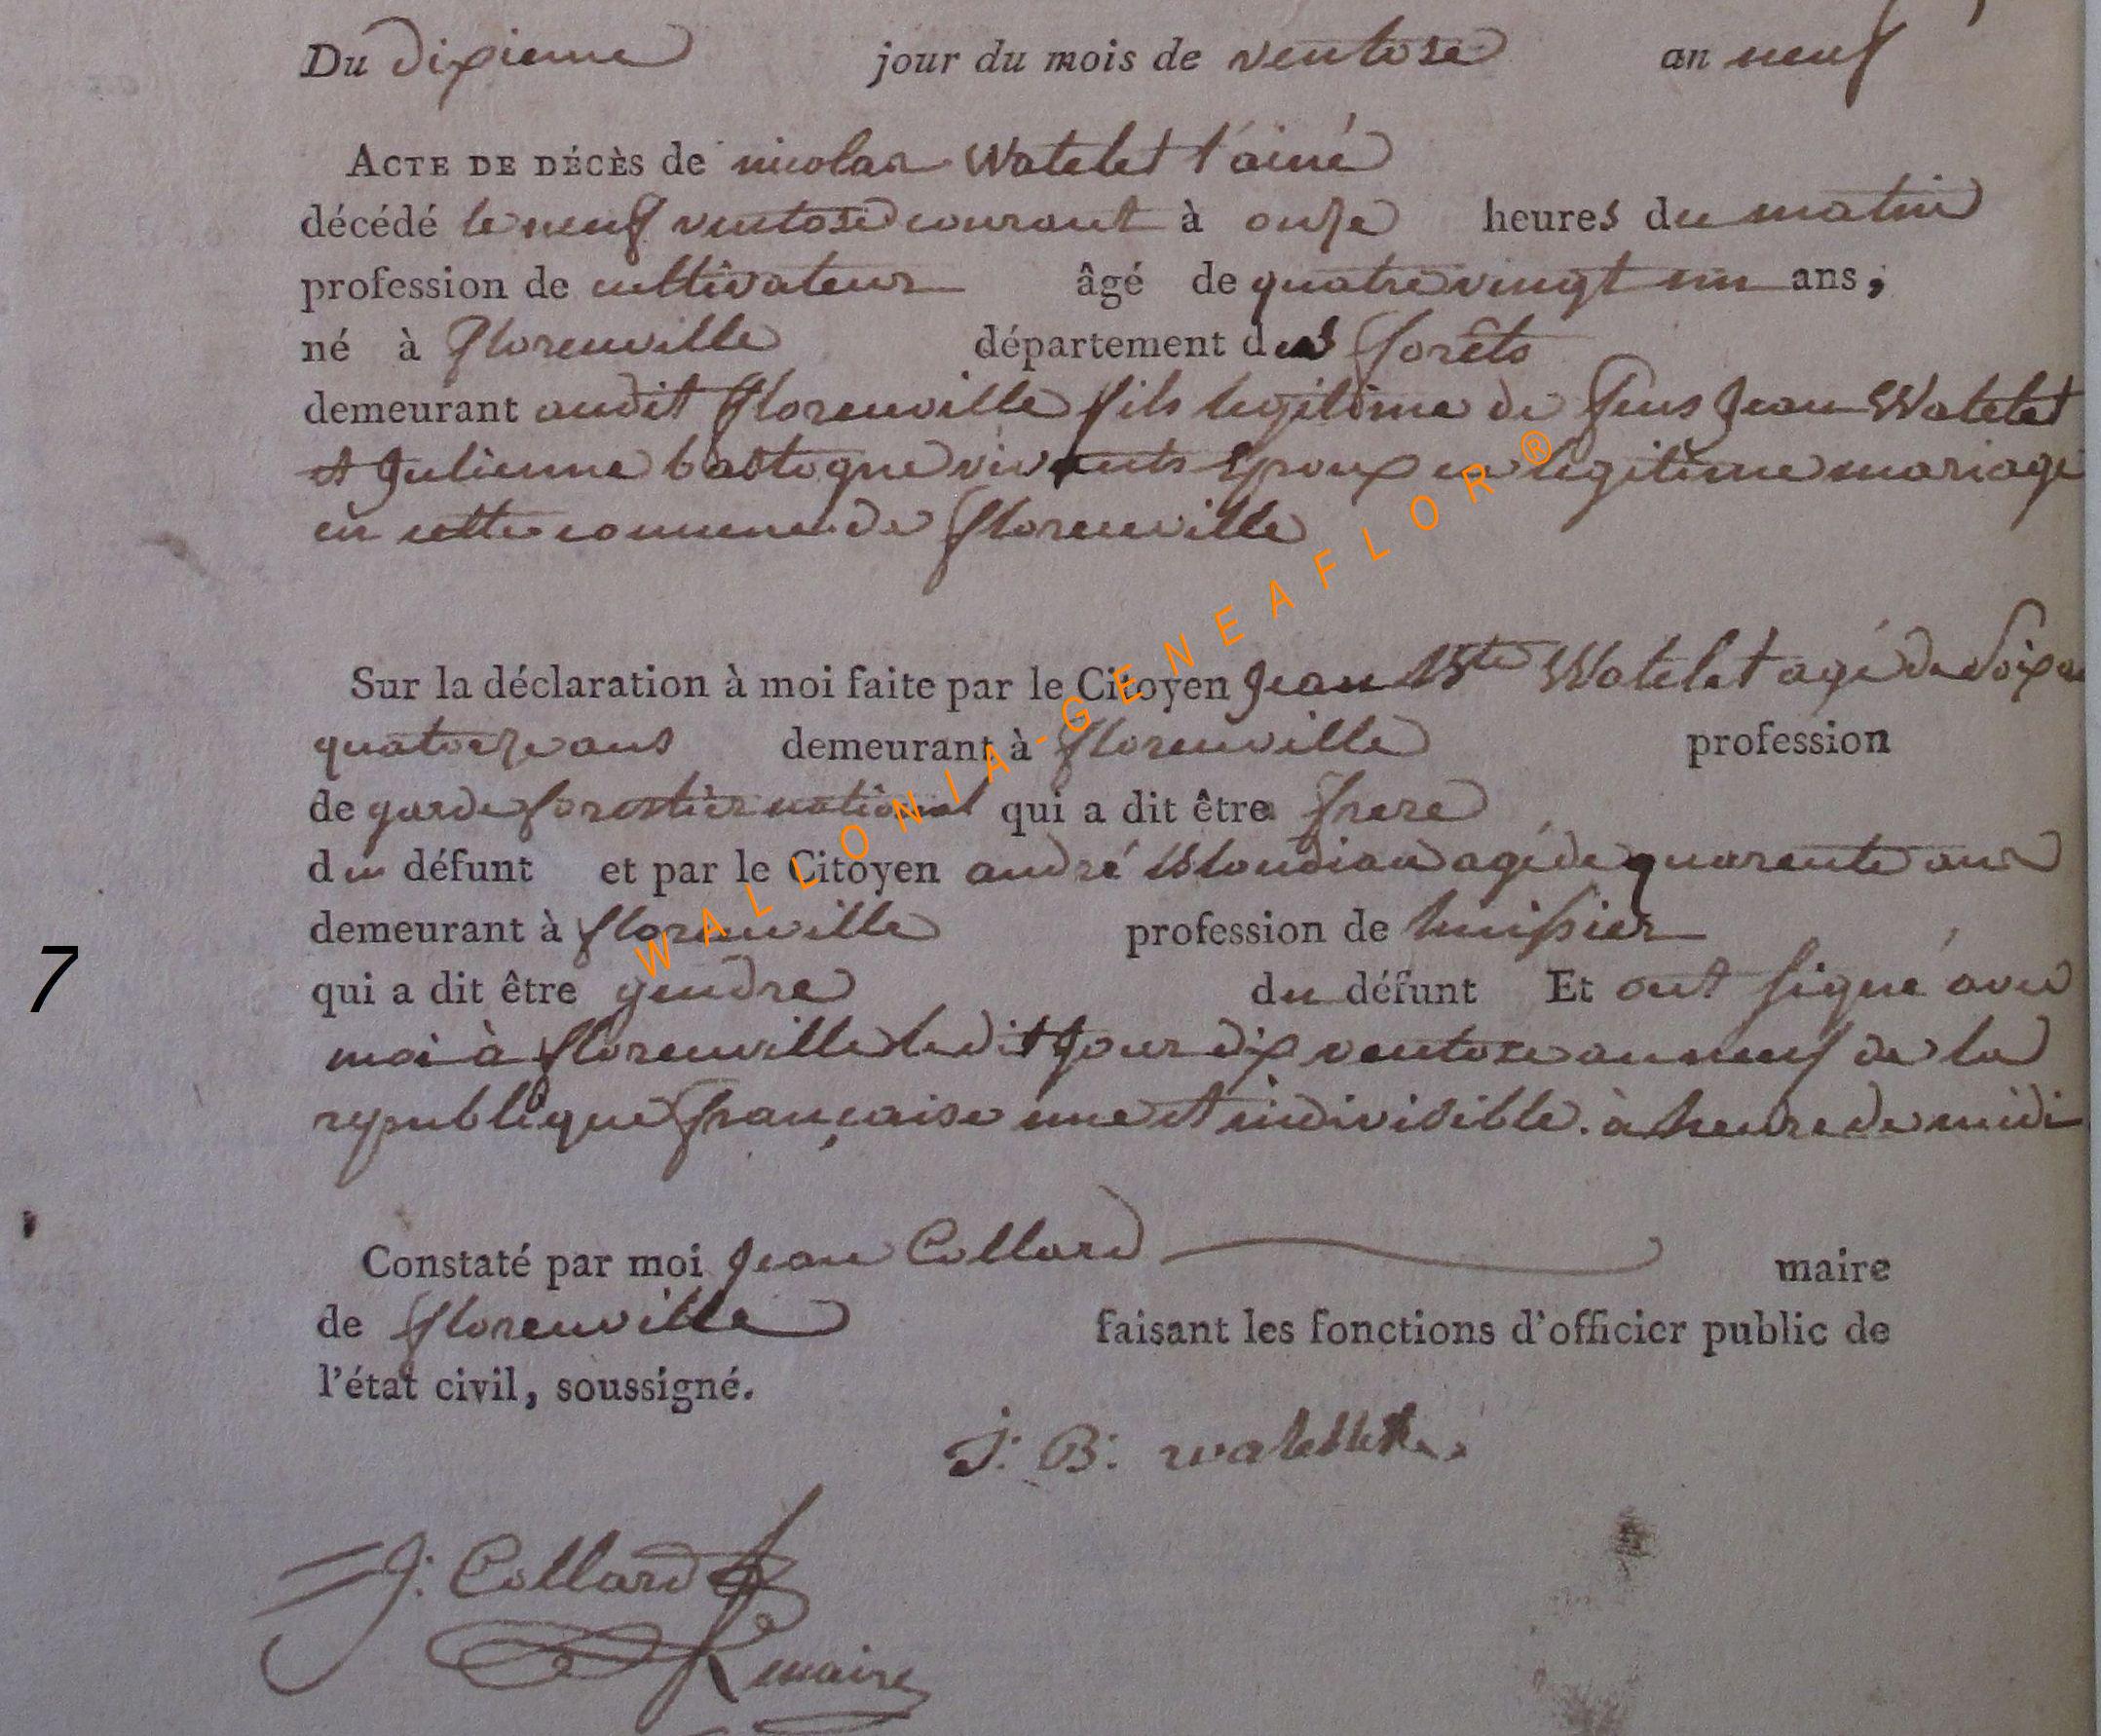 Du dixieme jour du mois de ventose an neuf
ACTE DE DÉCÈS de nicolas Watelet l'ainé
décédé le neuf ventose courant à onze heures du matin
profession de cultivateur âgé de quatre vingt un ans,
né à florenville département des forêts
demeurant audit florenville fils legitime de feus Jean Watelet
et Julienne bastogne vivants Epoux en legitime mariage
en cette commune de florenville
Sur la déclaration à moi faite par le Citoyen Jean Bte Watelet agé de Soixan
quatorze ans demeurant à florenville profession
de garde forestier national qui a dit être frere
du défunt et par le Citoyen andré blondiau agé de quarente ans
demeurant à florenville profession de huissier
qui a dit être gendre du défunt Et ont signé avec
moi à florenville ledit Jour dix ventose an neuf de la
republique française une et indivisible. à heure de midi
Constaté par moi Jean Collard maire
de florenville faisant les fonctions d'officier public de
l'état civil, soussigné.
J: B: 
J: Collard
maire
7
WALLONIA-GENEAFLOR ®